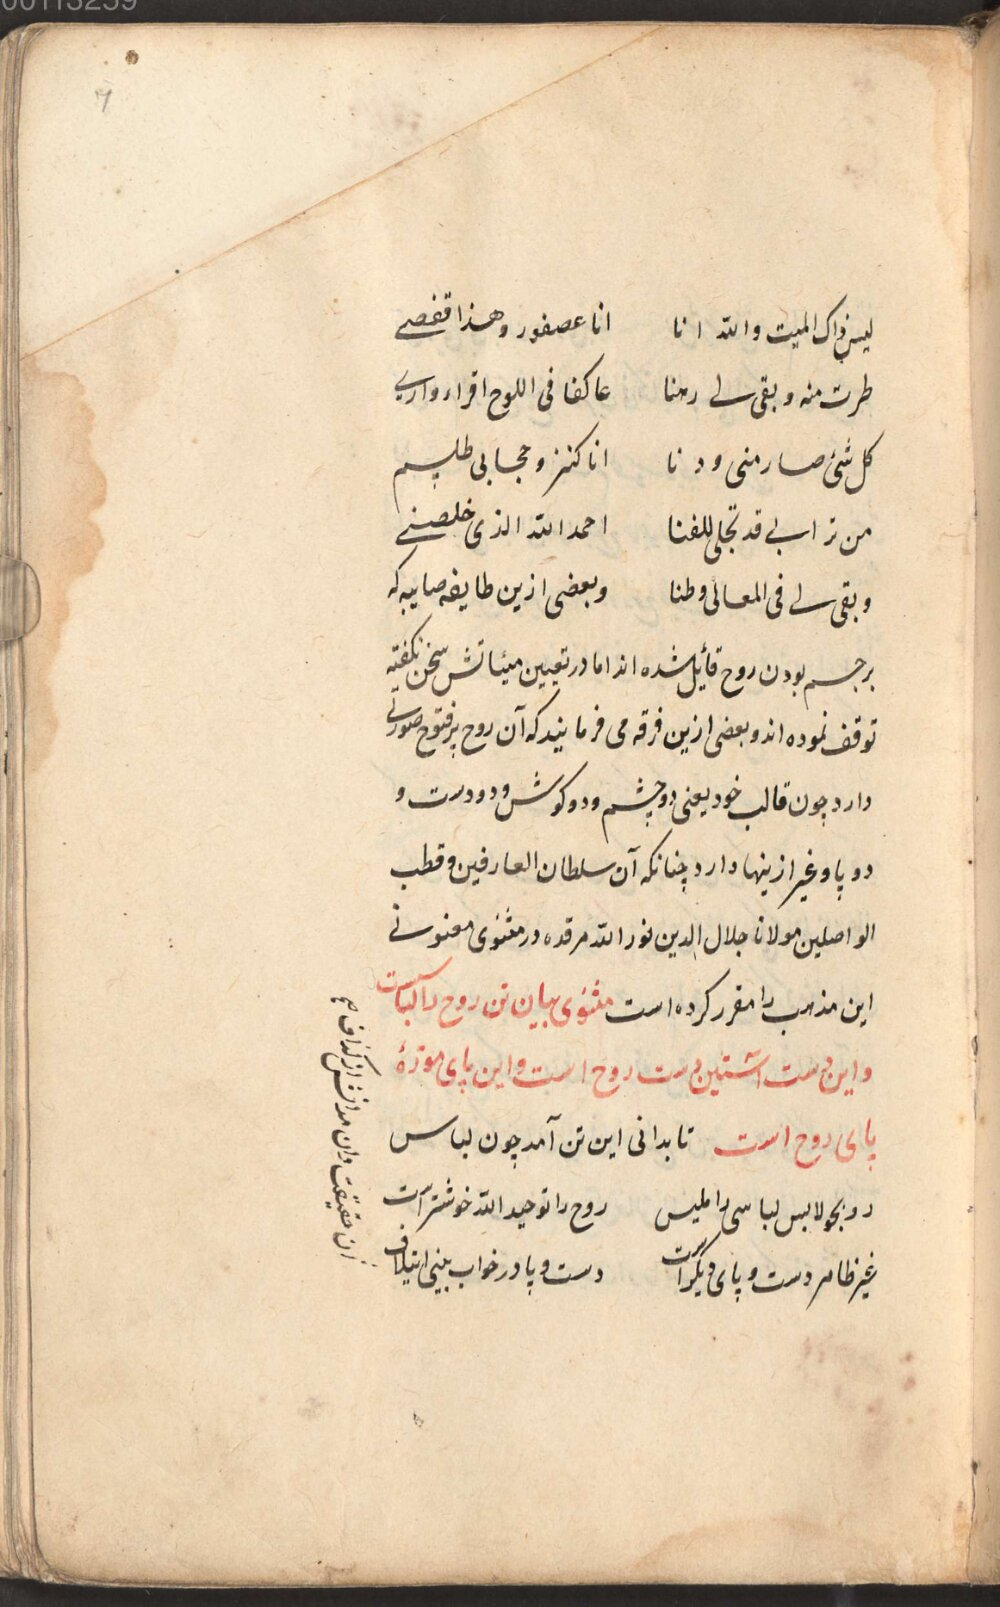 00113259
٦
لیس ذاک المیت والله انا انا عصفور وهذا قفصی
طرت منه وبقی لی رهنا عاکفا فی اللوح اقرا وارای
کل شئ صار منی ودنا انا کنز وحجابی طلسم
من تراب لی قد تجلی للفنا احمد الله الذی خلصنی
وبقی لی فی المعالی وطنا وبعضی ازین طایفه صایبه که
بر جسم بودن روح قائل شده اند اما در تعیین میئاتش سخن نکفته
توقف نموده اند و بعضی ازین فرقه می فرمایند که آن روح پرفتوح صورتی
دارد چون قالب خود یعنی دو چشم و دو کوش و دو دست و
دو پا و غیر ازینها دارد چنانکه آن سلطان العارفین و قطب
الواصلین مولانا جلال الدین نور الله مرقده در مثنوی معنوی
این مذهب را مقرر کرده است مثنوی بیان تن روح را لباسیست
و این دست آستین دست روح است و این پای موزهٔ
پای روح است تا بدانی این تن آمد چون لباس
رو بجو لابس لباسی را ملیس روح را توحید الله خوشتر است
غیر ظاهر دست و پای دیکر است دست و پا در خواب بینی ایتلاف
آن حقیقت دان مدانش از کذاف صح